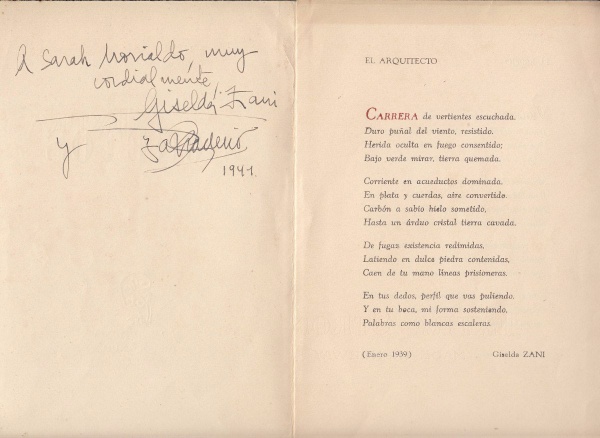 A Sarah
muy
cordialmente,
Giselda Zani
y
1941.
EL ARQUITECTO
CARRERA de vertientes escuchada.
Duro puñal del viento, resistido.
Herida oculta en fuego consentido;
Bajo verde mirar, tierra quemada.
Corriente en acueductos dominada.
En plata y cuerdas, aire convertido.
Carbón a sabio hielo sometido,
Hasta un árduo cristal tierra cavada.
De fugaz existencia redimidas,
Latiendo en dulce piedra contenidas,
Caen de tu mano líneas prisioneras.
En tus dedos, perfil que vas puliendo.
Y en tu boca, mi forma sosteniendo,
Palabras como blancas escaleras.
(Enero 1939) Giselda ZANI